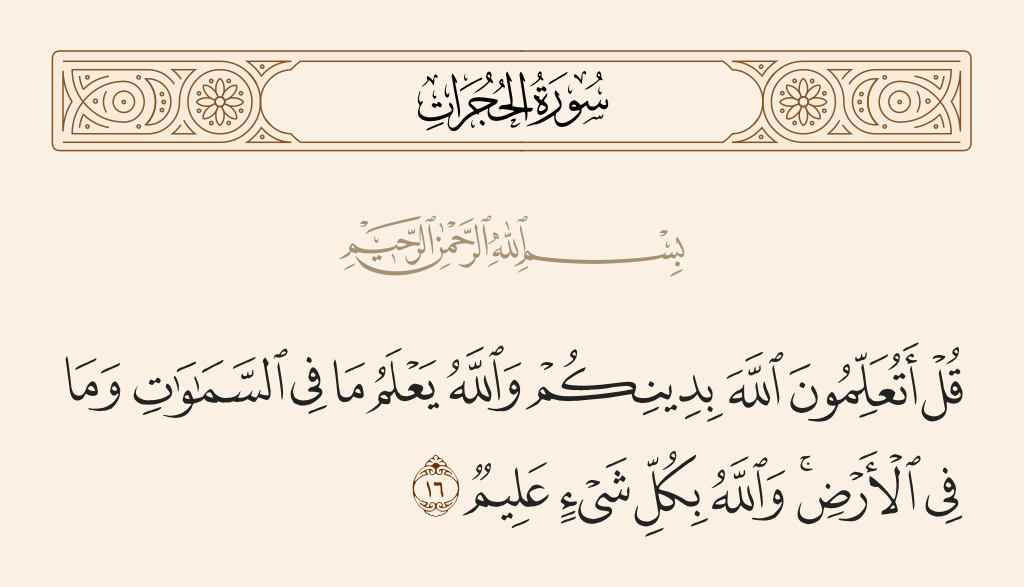 سُورَةُ الحُجُرَاتِ
بِسْمِ ٱللَّهِ ٱلرَّحْمَٰنِ ٱلرَّحِيمِ
قُلْ أَتُعَلِّمُونَ ٱللَّهَ بِدِينِكُمْ وَٱللَّهُ يَعْلَمُ مَا فِى ٱلسَّمَٰوَٰتِ وَمَا
فِى ٱلْأَرْضِ ۚ وَٱللَّهُ بِكُلِّ شَىْءٍ عَلِيمٌ ١٦